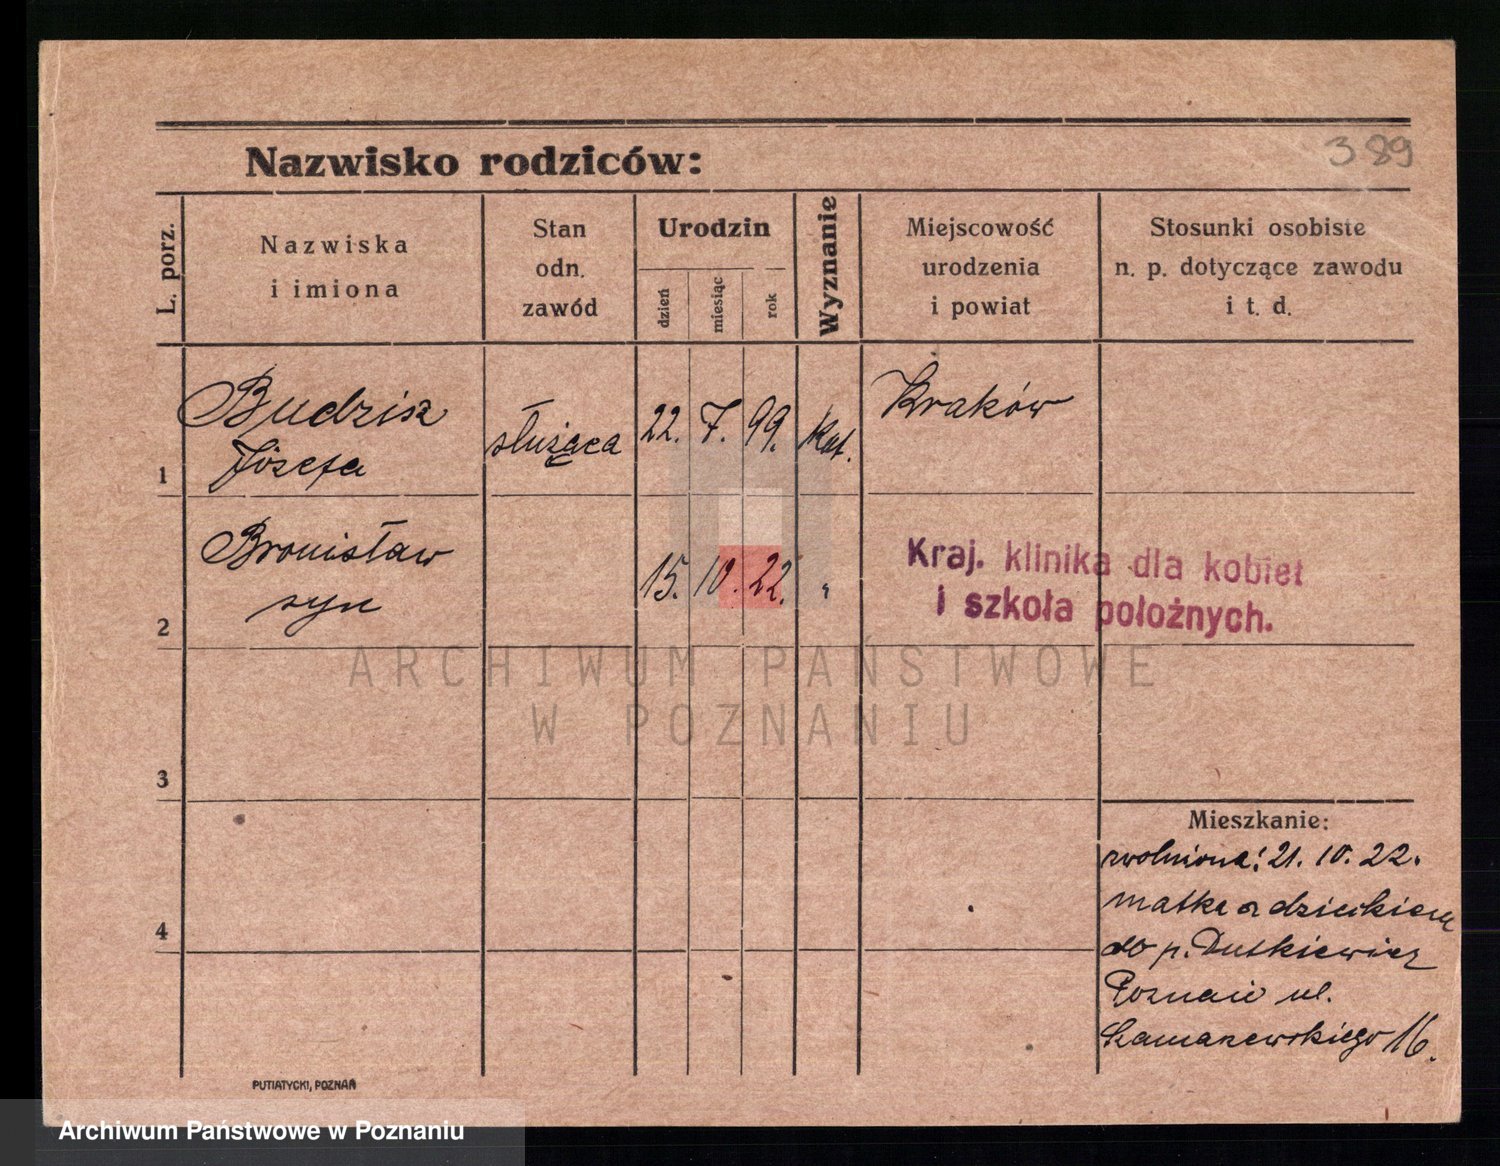 389
Nazwisko rodziców:
L. porz.
Nazwiska
i imiona
Stan
odn.
zawód
Urodzin
dzień
miesiąc
rok
Wyznanie
Miejscowość
urodzenia
i powiat
Stosunki osobiste
n. p. dotyczące zawodu
i t. d.
1
Budzisz
Józefa
służąca
22. 7. 99.
Kat.
Kraków
2
Bronisław
syn
15. 10. 22.
"
Kraj. klinika dla kobiet
i szkoła położnych.
ARCHIWUM PAŃSTWOWE
W POZNANIU
3
4
Mieszkanie:
zwolniona: 21. 10. 22.
matka z dzieckiem
do p. Dutkiewicz
Poznań ul.
Szamarzewskiego 16.
PUTIATYCKI, POZNAŃ
Archiwum Państwowe w Poznaniu